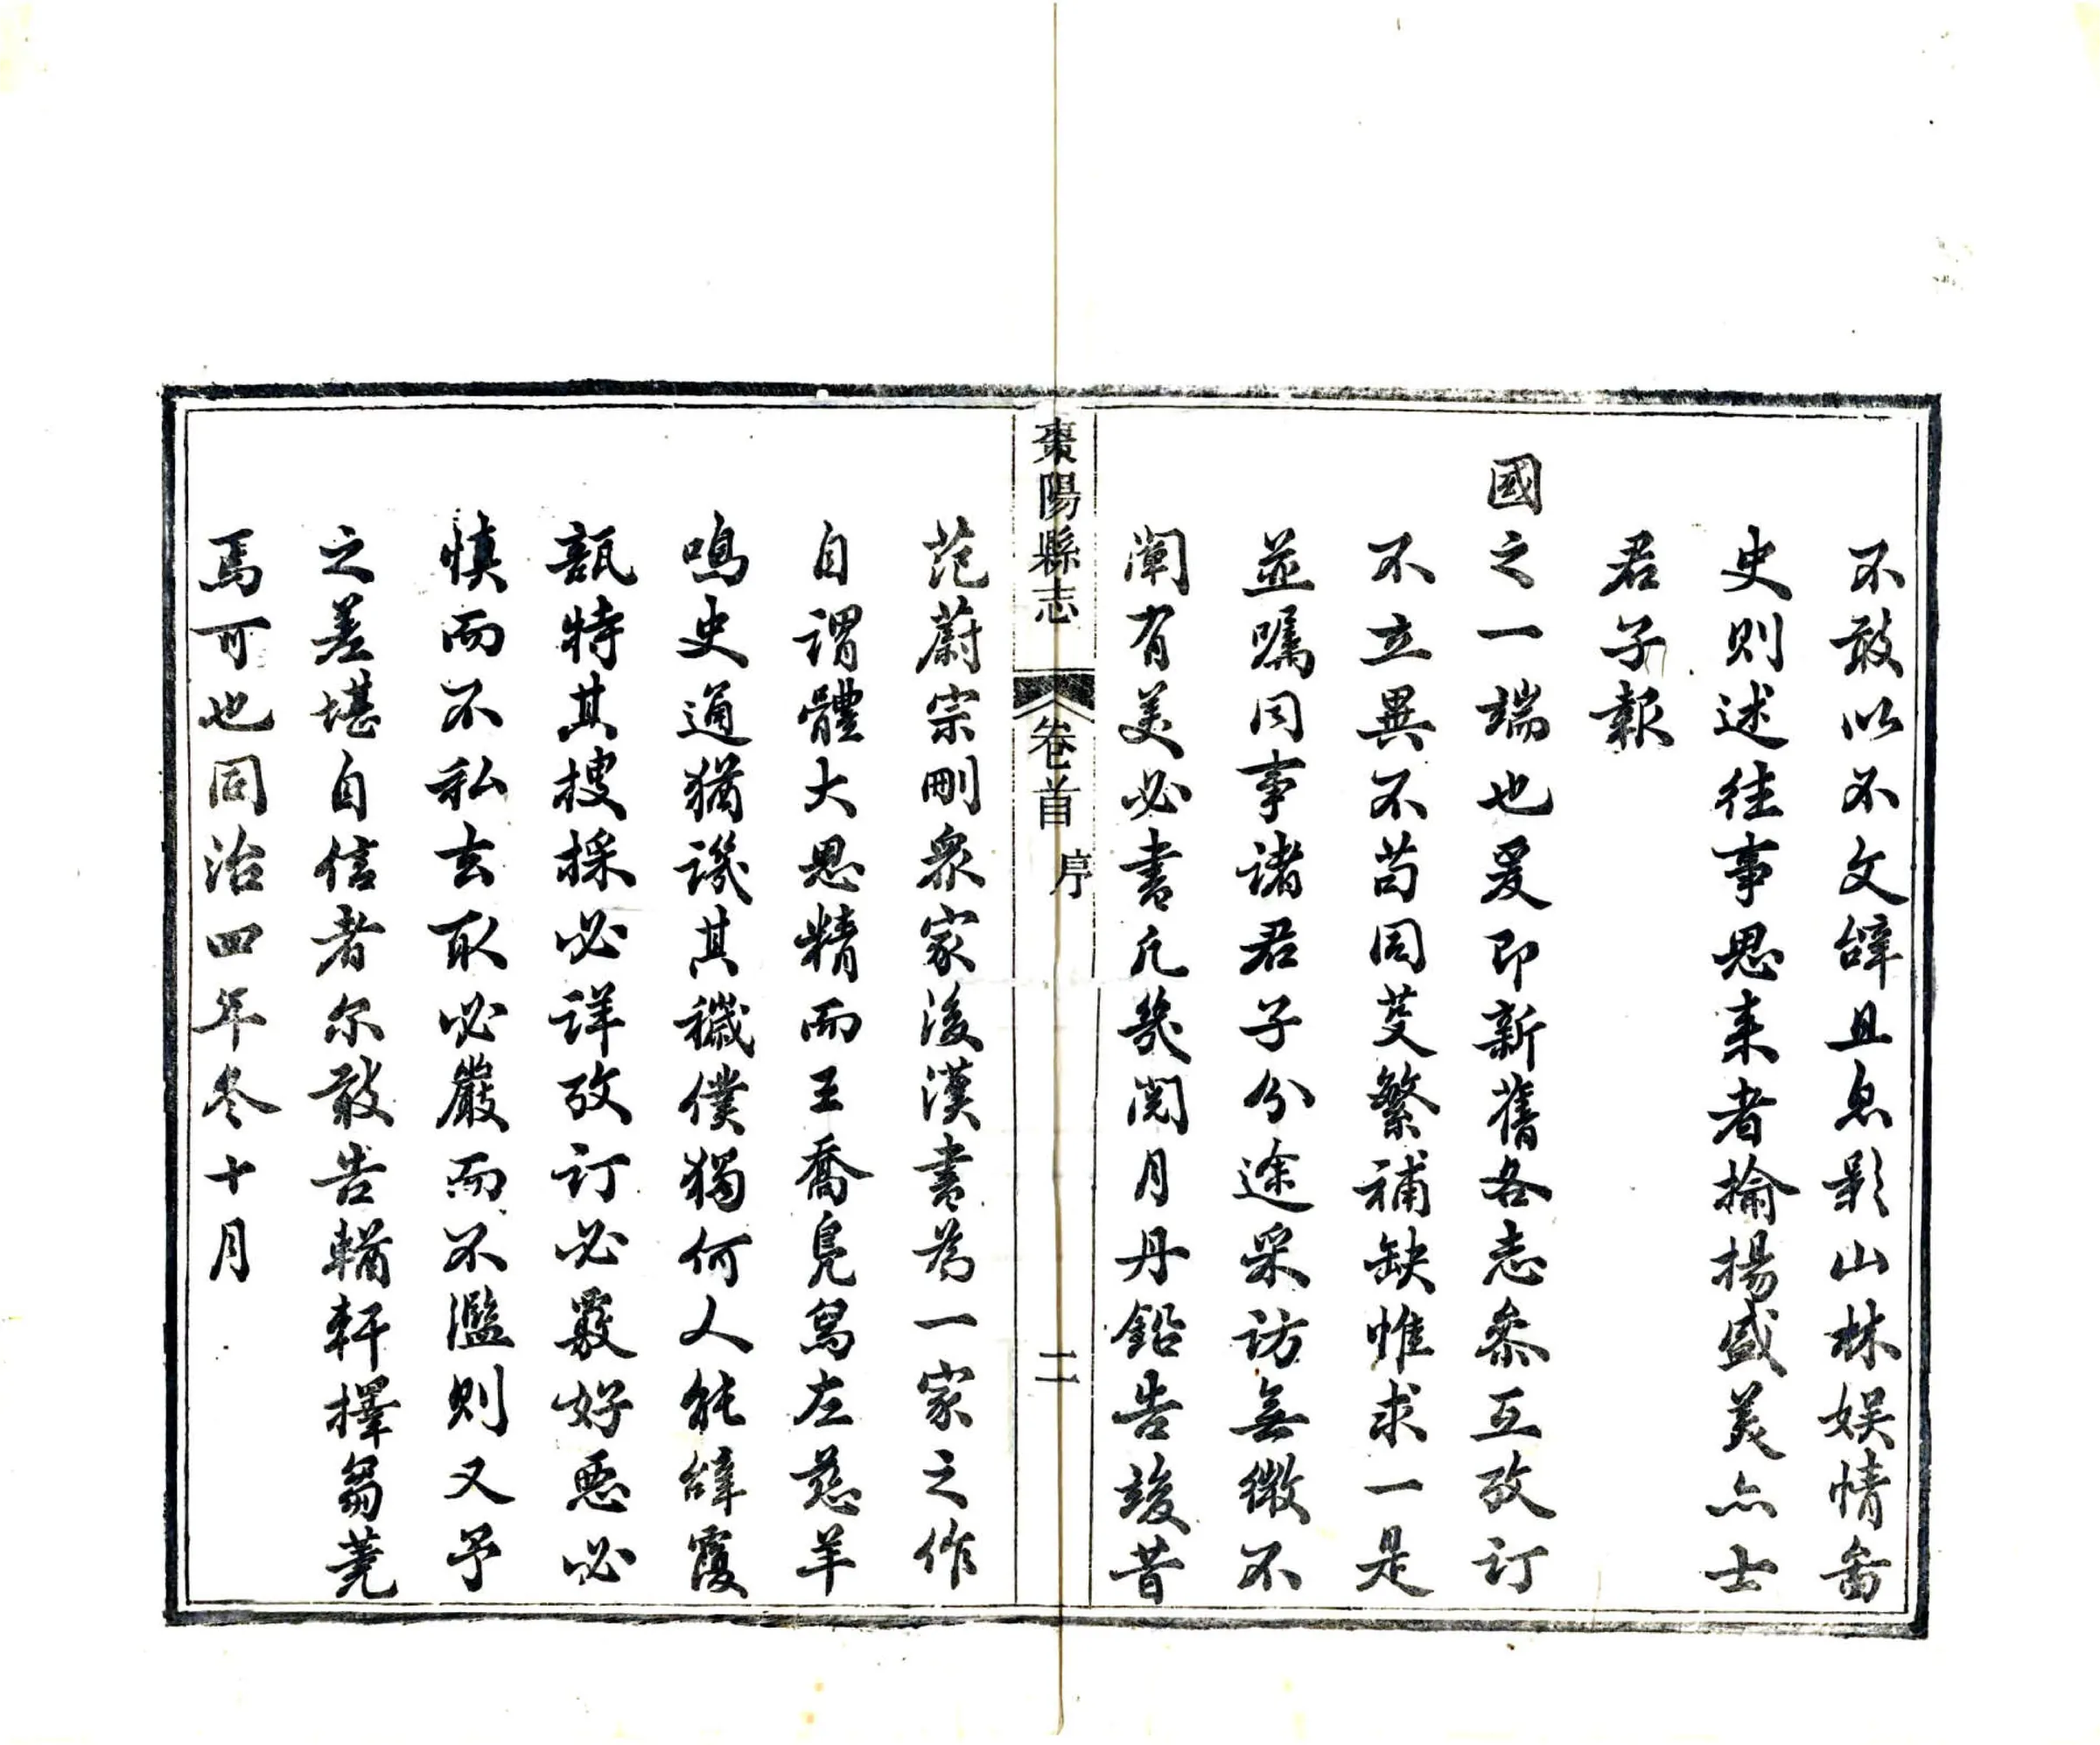 不敢以不文辭且息影山林娱情圖
史則述往事思来者揄揚盛美亦士
君子報
國之一端也爰即新舊各志叅互攷訂
不立異不苟同芟繁補缺惟求一是
並囑同事諸君子分途采訪無微不
闡有美必書凡幾閱月丹鉛告竣昔
棗陽縣志
卷首
序
二
范蔚宗刪衆家後漢書為一家之作
自謂體大思精而王喬鳧舄左慈羊
鳴史通猶譏其穢僕獨何人能辭覆
瓿特其搜採必詳攷訂必覈好惡必
慎而不私去取必嚴而不濫則又予
之差堪自信者尔敢告輶軒擇芻蕘
焉可也同治四年冬十月